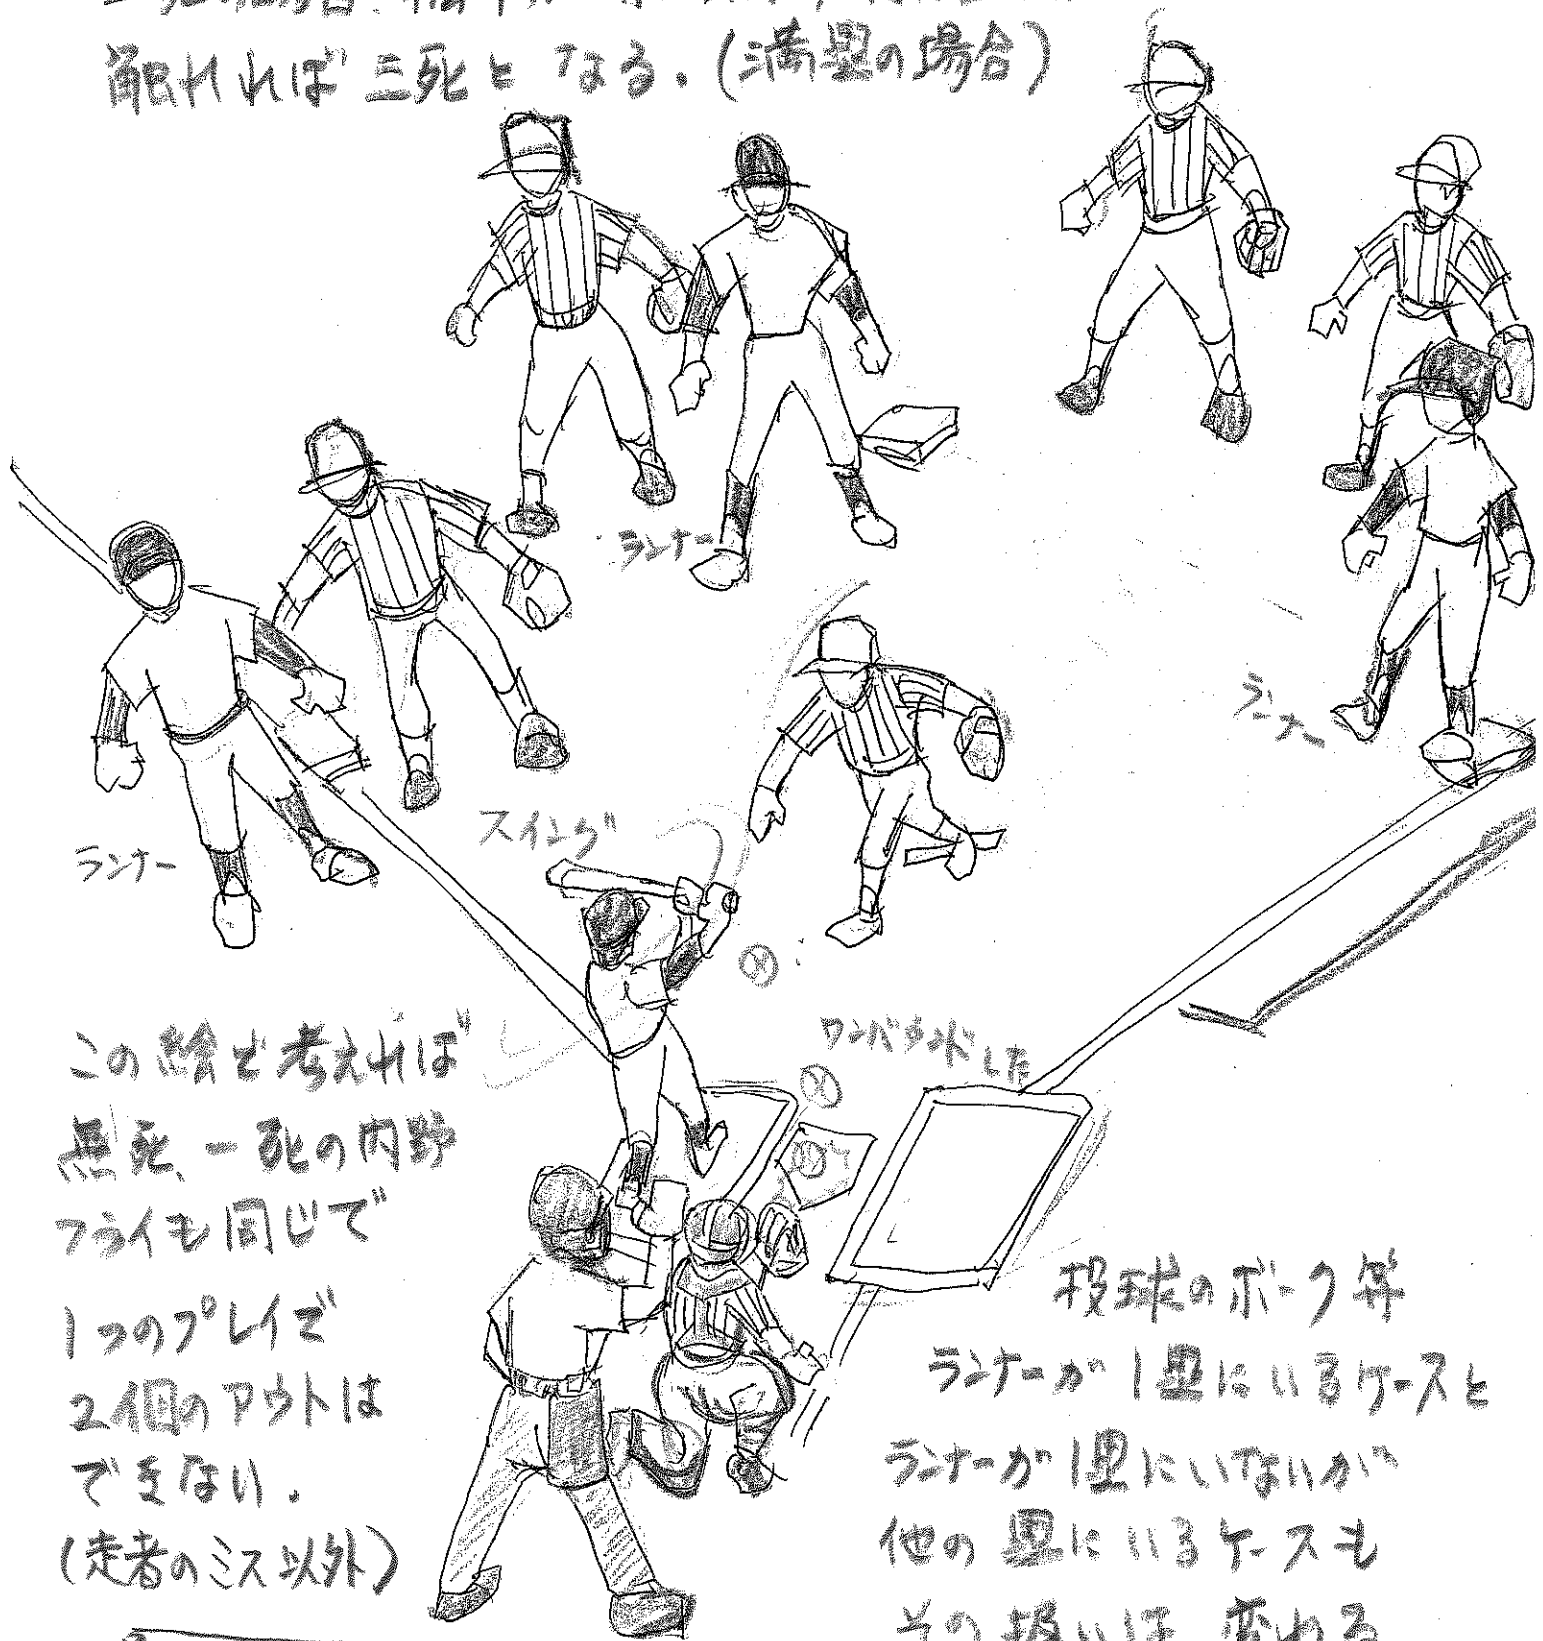 触れれば三死となる。(満塁の場合)
ランナー
ランナー
スイング
ランナー
ワンバウンドした
この絵で考えれば
無死、一死の内野
フライも同じで
1つのプレイで
2個のアウトは
できない。
(走者のミス以外)
投球のボーク等
ランナーが1塁にいるケースと
ランナーが1塁にいないが
他の塁にいるケースも
その扱いは変わる